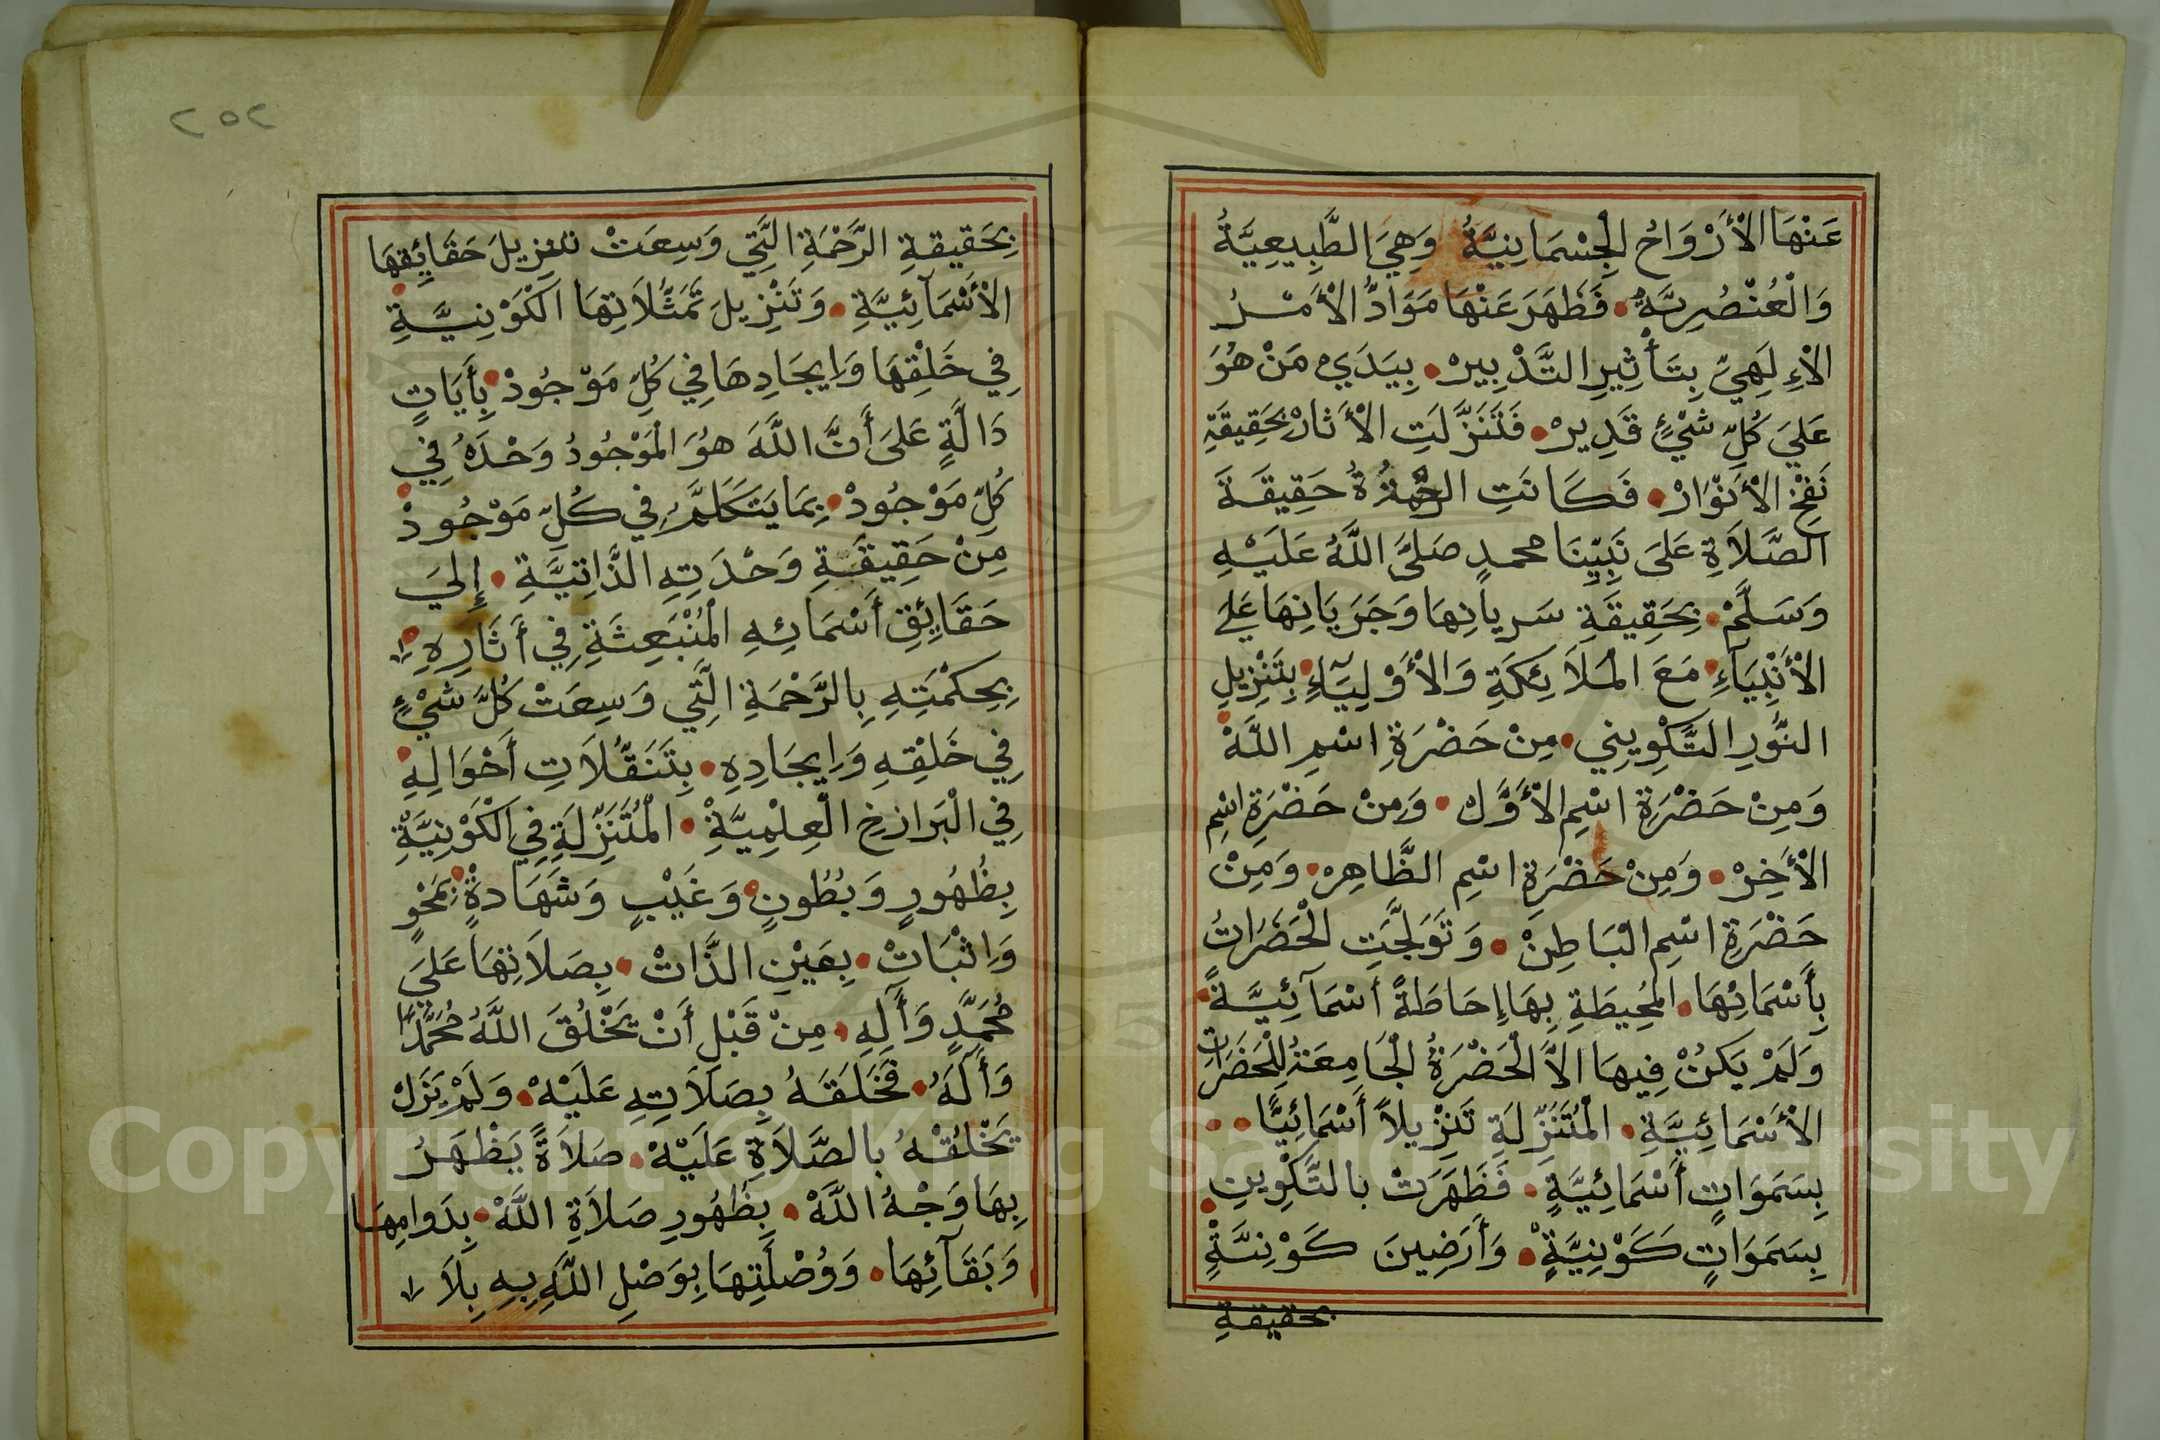 عَنْهَا الْأَرْوَاحُ الْجِسْمَانِيَّةُ وَهِيَ الطَّبِيعِيَّةُ
وَالْعُنْصُرِيَّةُ فَظَهَرَ عَنْهَا مَوَادُّ الْأَمْرُ
الْإِلَهِيِّ بِتَأْثِيرِ التَّدْبِيرْ بِيَدَيْ مَنْ هُوَ
عَلَيَ كُلِّ شَيْءٍ قَدِيرْ فَتَنَزَّلَتِ الْأَثَارْ بِحَقِيقَةِ
نَفْخِ الْأَنْوَارْ فَكَانَتِ حَقِيقَةَ
الصَّلَاةِ عَلَى نَبِيِّنَا محمدٍ صَلَّى اللَّهُ عَلَيْهِ
وَسَلَّمْ بِحَقِيقَةِ سَرَيانِهَا وَجَرَيَانِهَا عَلَى
الْأَنْبِيَآءِ مَعَ الْمَلَائِكَةِ وَالْأَوْلِيَآءِ بِتَنْزِيلِ
النُّورِ التَّكْوِينِي مِنْ حَضْرَةِ اسْمِ اللَّهْ
وَمِنْ حَضْرَةِ اسْمِ الْأَوَّلْ وَمِنْ حَضْرَةِ اسْمِ
الْأَخِرْ وَمِنْ حَضْرَةِ اسْمِ الظَّاهِرْ وَمِنْ
حَضْرَةِ اسْمِ الْبَاطِنْ وَتَوَلَّجَتِ الْحَضَرَاتُ
بِأَسْمَائِهَا الْمُحِيطَةِ بِهَا إِحَاطَةً أَسْمَآئِيَّةً
وَلَمْ يَكُنْ فِيهَا الاَّ الْحَضْرَةُ الْجَامِعَةُ لِلْحَضَرَاتِ
الْأَسْمَائِيَّةِ الْمُتَنَزِّلَةِ تَنْزِيلاً أَسْمَائِيًّا
بِسَمَوَاتٍ أَسْمَائِيَّةٍ فَظَهَرَتْ بالتَّكْوِينِ
بِسَمَوَاتٍ كَوْنِيَّةٍ وَأَرَضِينَ كَوْنِيَّةٍ
بحقيقةِ
٢٥٢
بِحَقِيقةِ الرَّحْمَةِ الَّتِي وَسِعَتْ تنزِيلَ حَقَايِقِهَا
الْأَسْمَآئِيَّةِ وَتَنْزِيلَ تَمَثُّلاَتِهَا الْكَوْنِيَّةِ
فِي خَلْقِهَا وَإِيجَادِهَا فِي كُلِّ مَوْجُودْ بِأَيَاتٍ
دَالَّةٍ عَلَى أَنَّ اللَّهَ هُوَ الْمَوْجُودُ وَحْدَهُ فِي
كُلِّ مَوْجُودْ بِمَا يَتَكَلَّمُ فِي كُلِّ مَوْجُودْ
مِنْ حَقِيقَةِ وَحْدَتِهِ الذَّاتِيَّةِ إِلَيَ
حَقَائِقِ أَسْمَائِهِ الْمُنْبَعِثَةِ فِي أَثَارِهِ
بِحِكْمَتِهِ بِالرَّحْمَةِ الَّتِي وَسِعَتْ كُلَّ شَيْءٍ
فِي خَلْقِهِ وَإِيجَادِهِ بِتَنَقُّلاَتِ أَحْوَالِهِ
فِي الْبَرَازخِ الْعِلْمِيَّةْ الْمُتَنَزِّلَةِ فِي الْكَوْنِيَّةْ
بِظُهُورٍ وَبُطُونٍ وَغَيْبٍ وَشَهَادةْ بِمَحْوٍ
وَإِثْبَاتْ بِعَيْنِ الذَّاتْ بِصَلَاتِهَا عَلَيَ
مُحَمَّدٍ وَأَلِهِ مِنْ قَبْلِ أَنْ يَخْلُقَ اللَّهُ مُحَمَّدًا
وَأَلَهُ فَخَلَقَهُ بِصَلَاتِهِ عَلَيْهْ وَلَمْ يَزَلْ
يَخْلُقْهُ بالصَّلَاةِ عَلَيْهْ صَلَاةً يَظْهَرُ
بِهَا وَجْهُ اللَّهْ بِظُهُورِ صَلاَةِ اللَّهْ بِدَوامِهَا
وَبَقَآئِهَا وَوُصْلَتِهَا بِوَصْلِ اللَّهِ بِهِ بِلاَ
Copyright © King Saud University